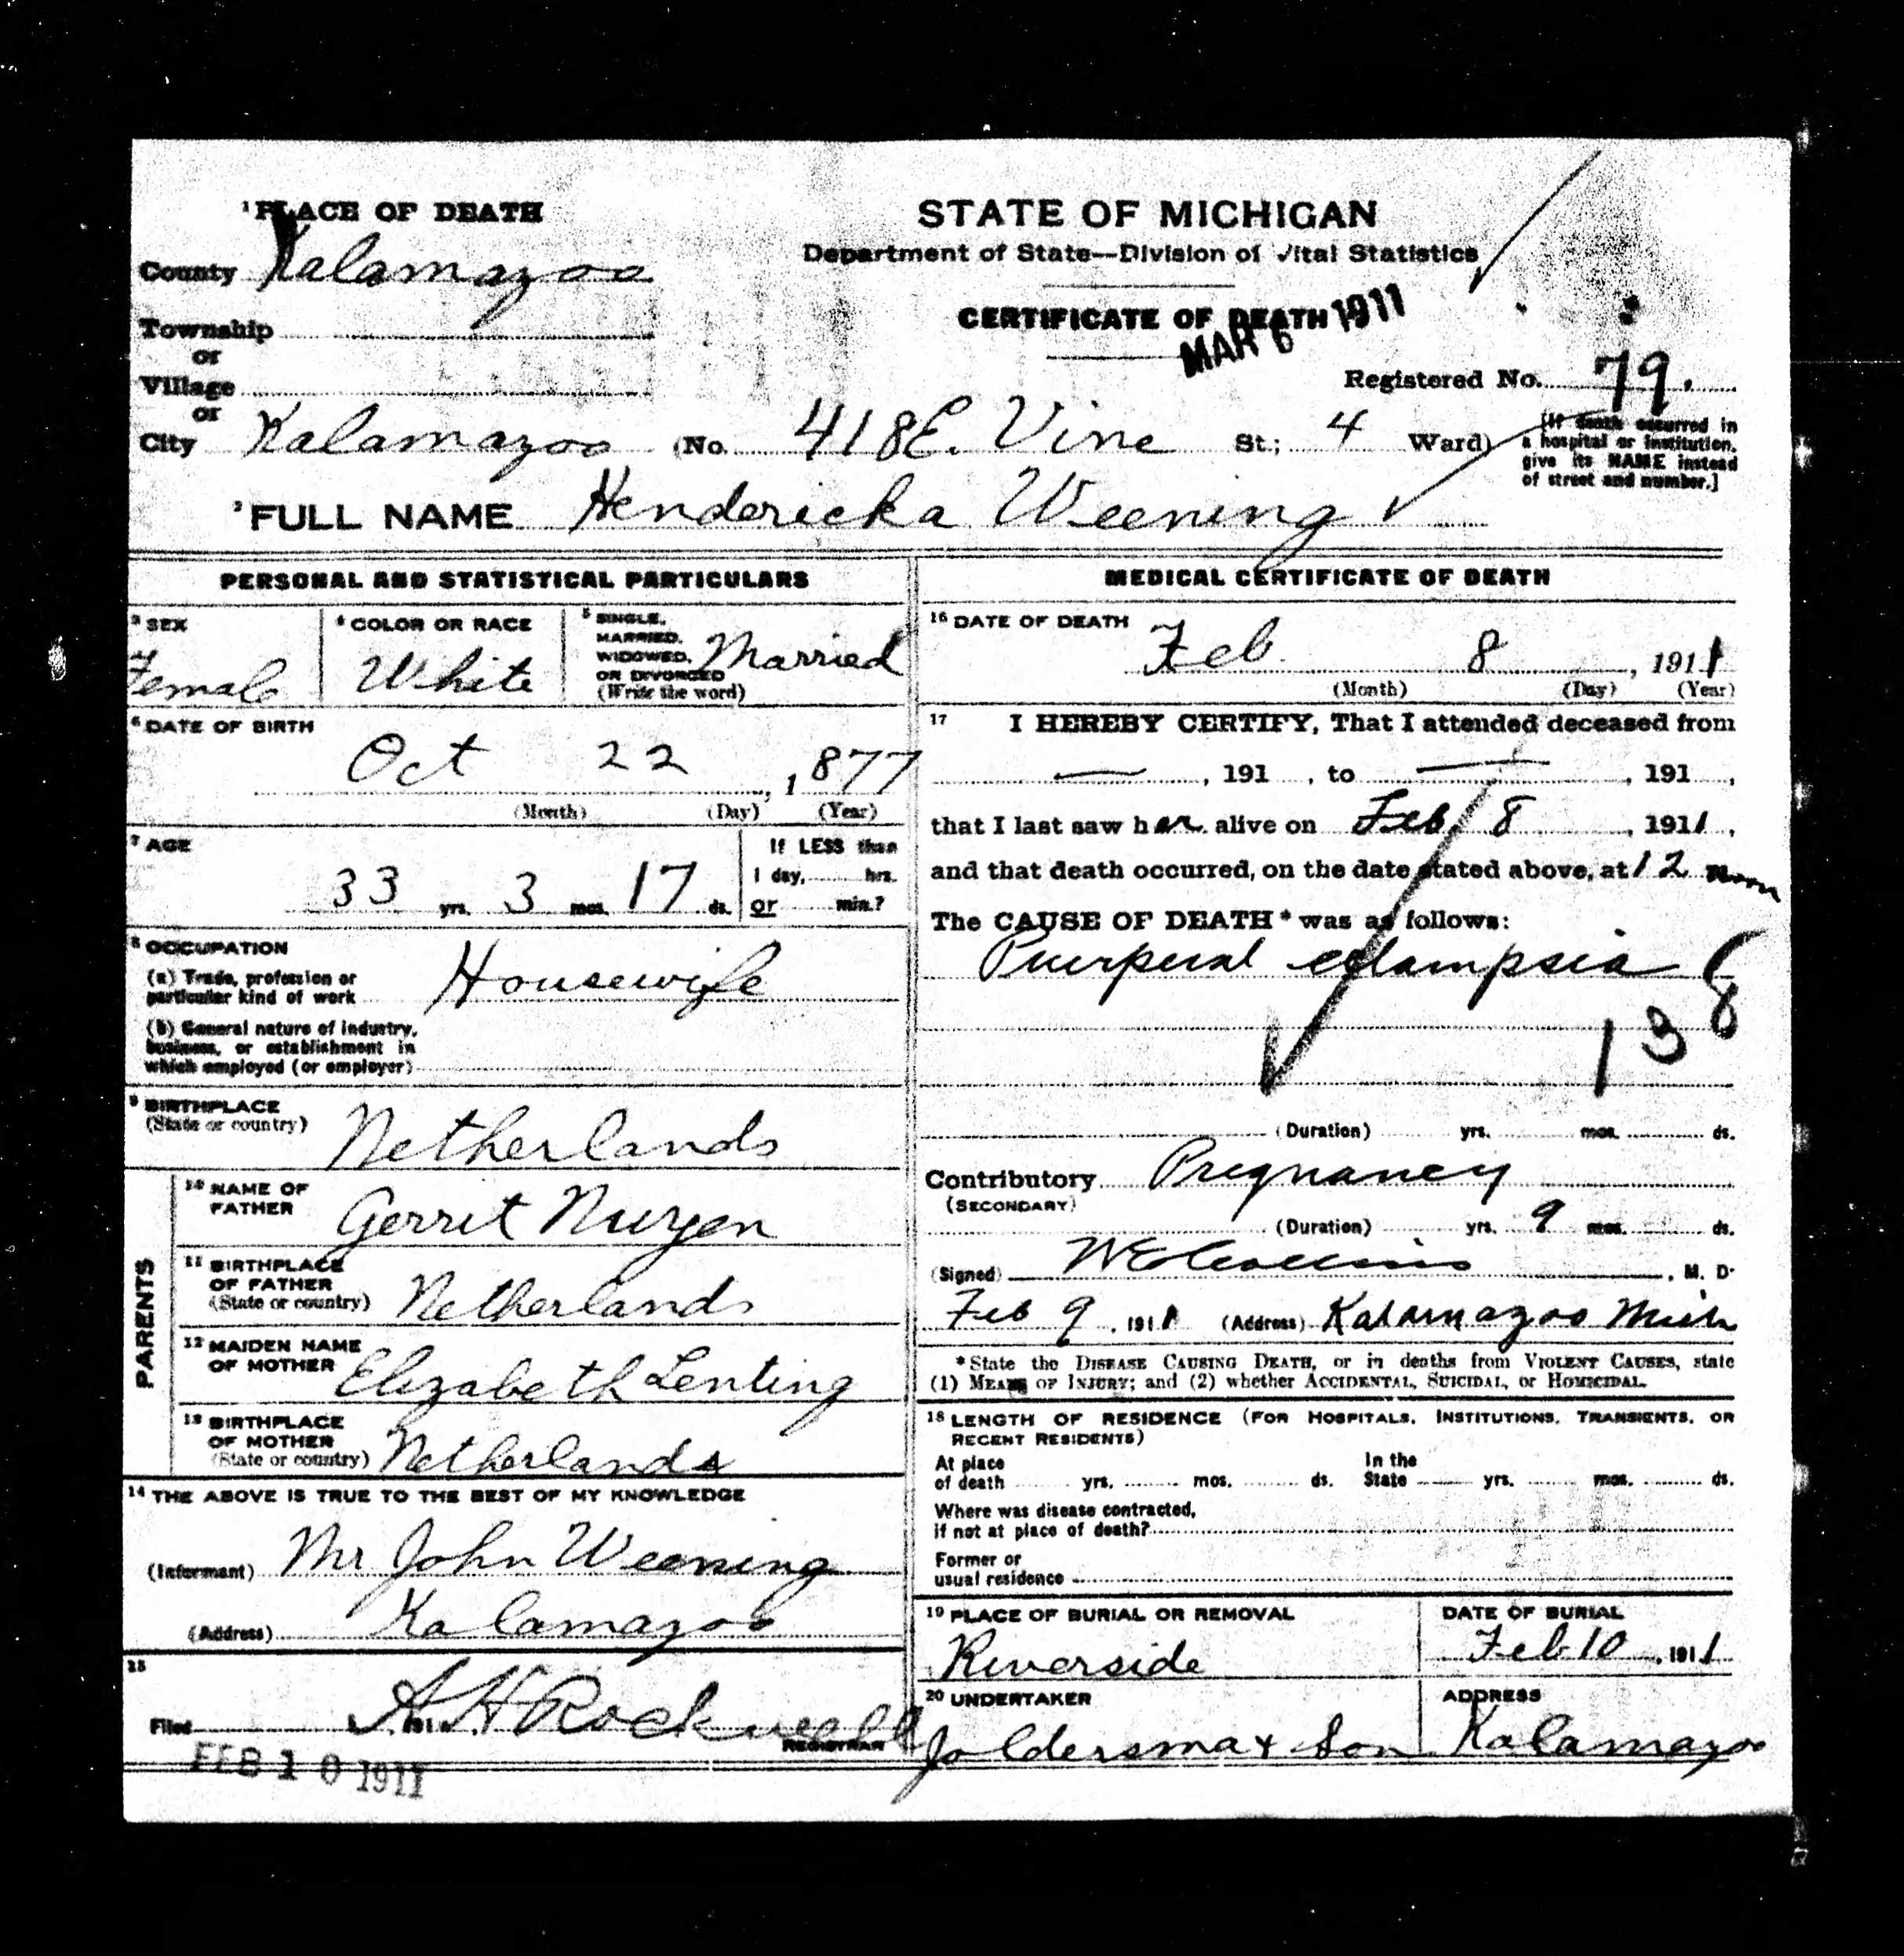 1 PLACE OF DEATH
County Kalamazoo
Township
or
Village
or
City Kalamazoo (No. 418 E. Vine St.; 4 Ward)
STATE OF MICHIGAN
Department of State—Division of Vital Statistics
CERTIFICATE OF DEATH
MAR 6 1911
Registered No. 79.
[If death occurred in
a hospital or institution,
give its NAME instead
of street and number.]
2 FULL NAME Hendericka Weening
PERSONAL AND STATISTICAL PARTICULARS
3 SEX
Female
4 COLOR OR RACE
White
5 SINGLE,
MARRIED,
WIDOWED,
OR DIVORCED
(Write the word)
Married
6 DATE OF BIRTH
Oct 22, 1877
(Month) (Day) (Year)
7 AGE
33 yrs. 3 mos. 17 ds.
If LESS than
1 day, hrs.
or min.?
8 OCCUPATION
(a) Trade, profession or
particular kind of work
Housewife
(b) General nature of industry,
business, or establishment in
which employed (or employer)
9 BIRTHPLACE
(State or country)
Netherlands
PARENTS
10 NAME OF
FATHER
Gerrit
11 BIRTHPLACE
OF FATHER
(State or country)
Netherlands
12 MAIDEN NAME
OF MOTHER
Elizabeth Lenting
13 BIRTHPLACE
OF MOTHER
(State or country)
Netherlands
14 THE ABOVE IS TRUE TO THE BEST OF MY KNOWLEDGE
(Informant) Mr John Weening
(Address) Kalamazoo
15
Filed , 191 A H Rockwell
REGISTRAR
FEB 10 1911
MEDICAL CERTIFICATE OF DEATH
16 DATE OF DEATH
Feb. 8, 1911
(Month) (Day) (Year)
17 I HEREBY CERTIFY, That I attended deceased from
— , 191 , to — , 191 ,
that I last saw her alive on Feb 8, 1911,
and that death occurred, on the date stated above, at 12 noon
The CAUSE OF DEATH* was as follows:
Puerperal eclampsia
138
(Duration) yrs. mos. ds.
Contributory Pregnancy
(SECONDARY)
(Duration) yrs. 9 mos. ds.
(Signed) W E Collins, M. D.
Feb 9, 1911 (Address) Kalamazoo Mich
*State the DISEASE CAUSING DEATH, or in deaths from VIOLENT CAUSES, state
(1) MEANS OF INJURY; and (2) whether ACCIDENTAL, SUICIDAL, or HOMICIDAL.
18 LENGTH OF RESIDENCE (FOR HOSPITALS, INSTITUTIONS, TRANSIENTS, OR
RECENT RESIDENTS)
At place
of death yrs. mos. ds.
In the
State yrs. mos. ds.
Where was disease contracted,
if not at place of death?
Former or
usual residence
19 PLACE OF BURIAL OR REMOVAL
Riverside
DATE OF BURIAL
Feb 10, 1911
20 UNDERTAKER
Joldersma & Son
ADDRESS
Kalamazoo